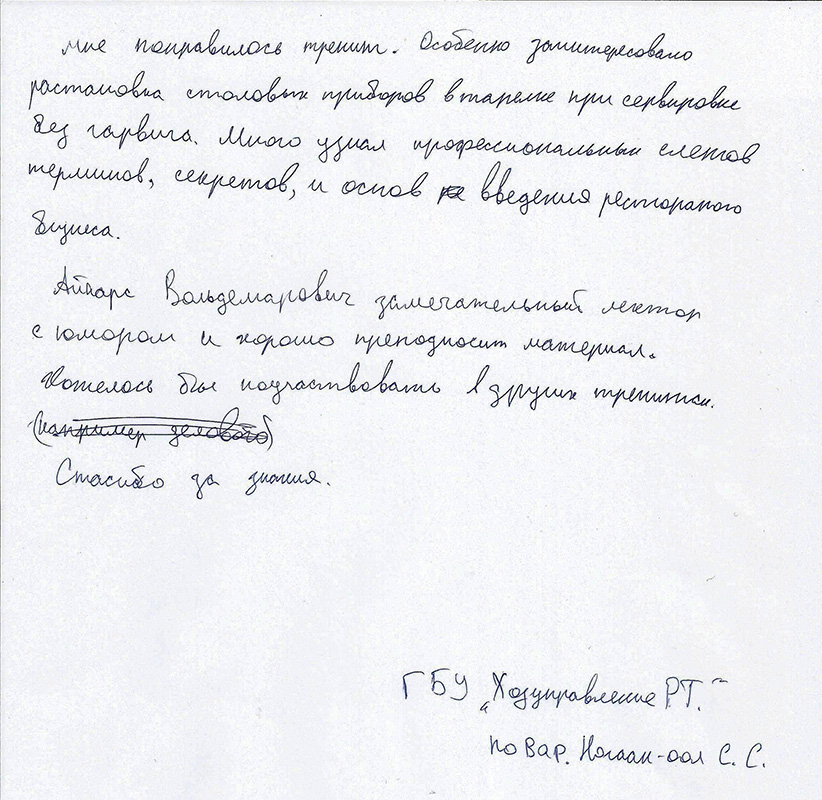 мне понравилось тренинг. Особенно заинтересовало
растановка столовых приборов в тарелке при сервировке
без гарвига. Много узнал профессиональных слегов
терминов, секретов, и основ введения ресторанного
бизнеса.
Айварс Вольдемарович замечательный лектор
с юмором и хорошо преподносит материал.
Хотелось бы поучаствовать в других тренингах.
(например делового)
Спасибо за знания.
ГБУ „Хозуправление РТ."
повар. Ногаан-оол С. С.